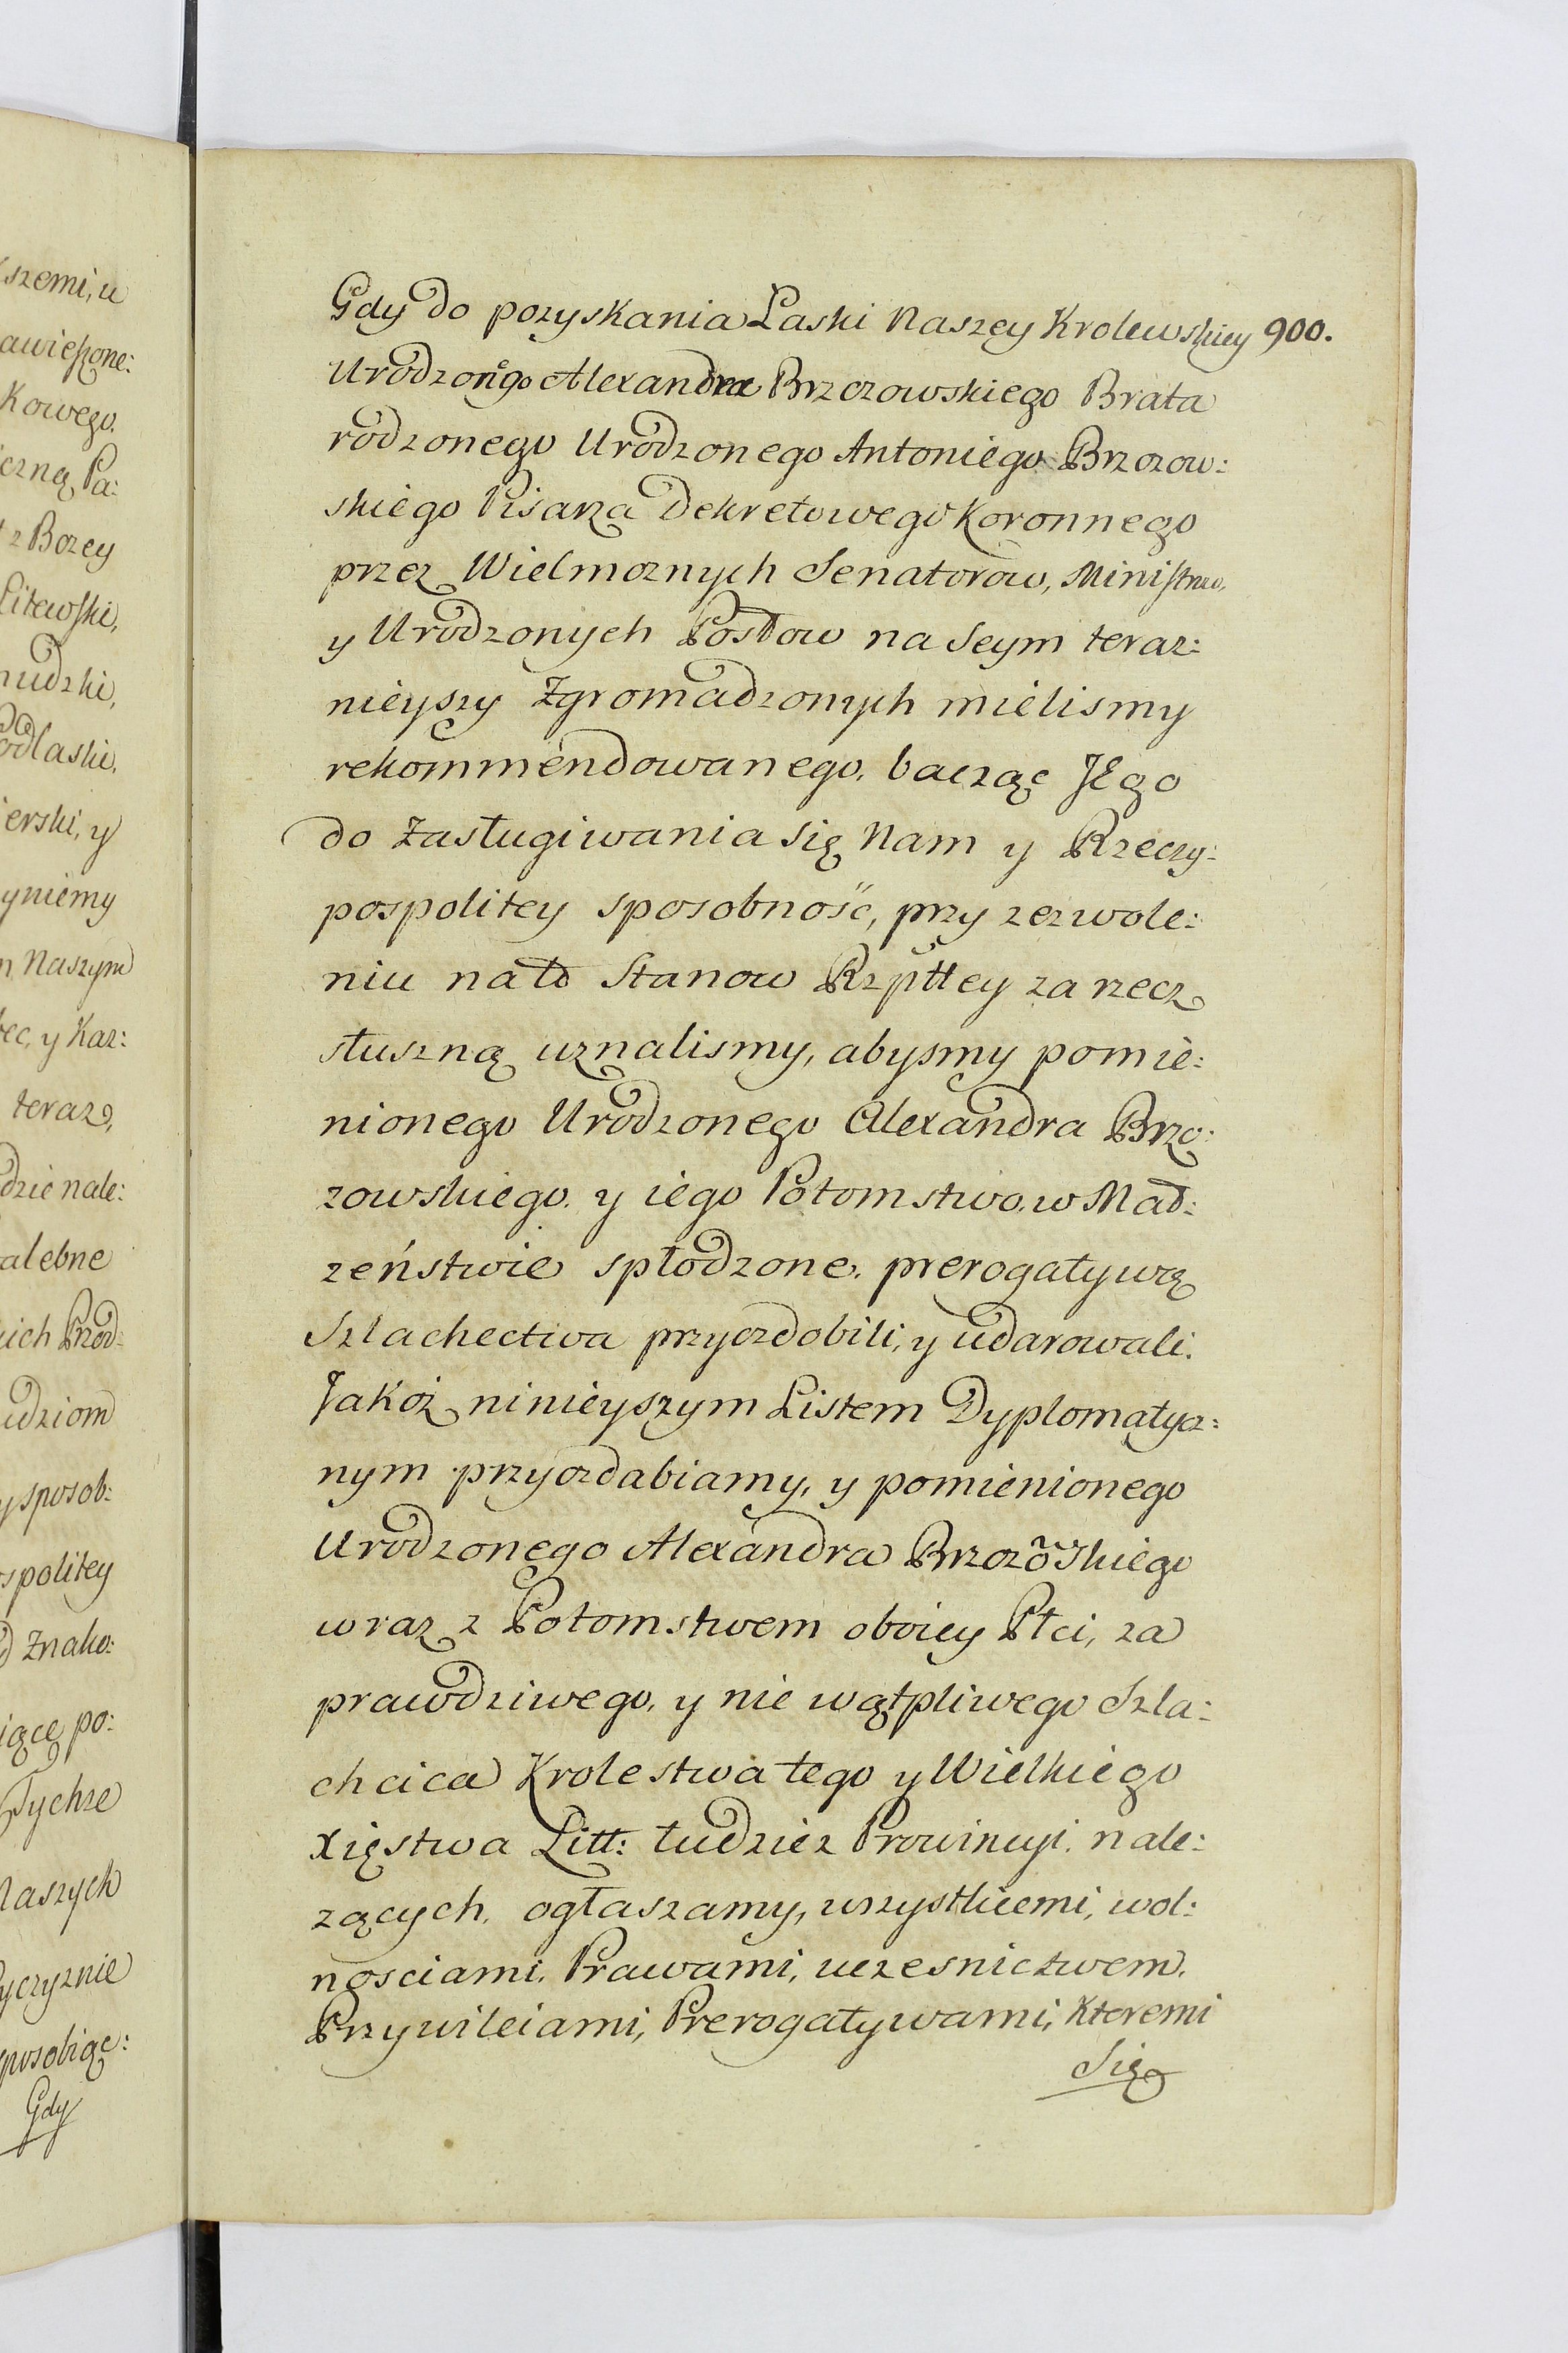 szemi, u
awieszone:
kowego.
iczną Pa:
z Bozey
Litewski,
mudzki,
odlaski,
ierski, y
yniemy
m Naszym
bec, y Kaz:
teraz,
dzie nale:
alebne
ich Przod:
udziom
y sposob:
spolitey
Znako:
iące po:
Tychze
Naszych
yczyznie
posobiąc:
Gdy
Gdy do pozyskania Laski Naszey Krolewskiey 900.
Urodzongo Alexandra Brzozowskiego Brata
rodzonego Urodzonego Antoniego Brzozow:
skiego Pisarza Dekretowego Koronnego
przez Wielmoznych Senatorow, Ministrow,
y Urodzonych Posłow na Seym teraz:
nieyszy Zgromadzonych mielismy
rekommendowanego, bacząc Jego
do Zasługiwania się Nam y Rzeczy:
pospolitey sposobność, przy zezwole:
niu na to Stanow Rzpttey za rzecz
słuszną uznalismy, abysmy pomie:
nionego Urodzonego Alexandra Brzo:
zowskiego, y iego Potomstwo, w Mał:
zeństwie spłodzone, prerogatywą
Szlachectwa przyozdobili, y udarowali.
Jakoż ninieyszym Listem Dyplomatycz:
nym przyozdabiamy, y pomienionego
Urodzonego Alexandra Brzozõskiego
wraz z Potomstwem oboiey Płci, za
prawdziwego, y nie wątpliwego Szla:
chcica Krolestwa tego y Wielkiego
Xięstwa Litt: tudziez Prowincyi, nale:
zących, ogłaszamy, wszystkiemi, wol:
nosciami, Prawami, uczesnictwem,
Przywileiami, Prerogatywami, Ktoremi
Się